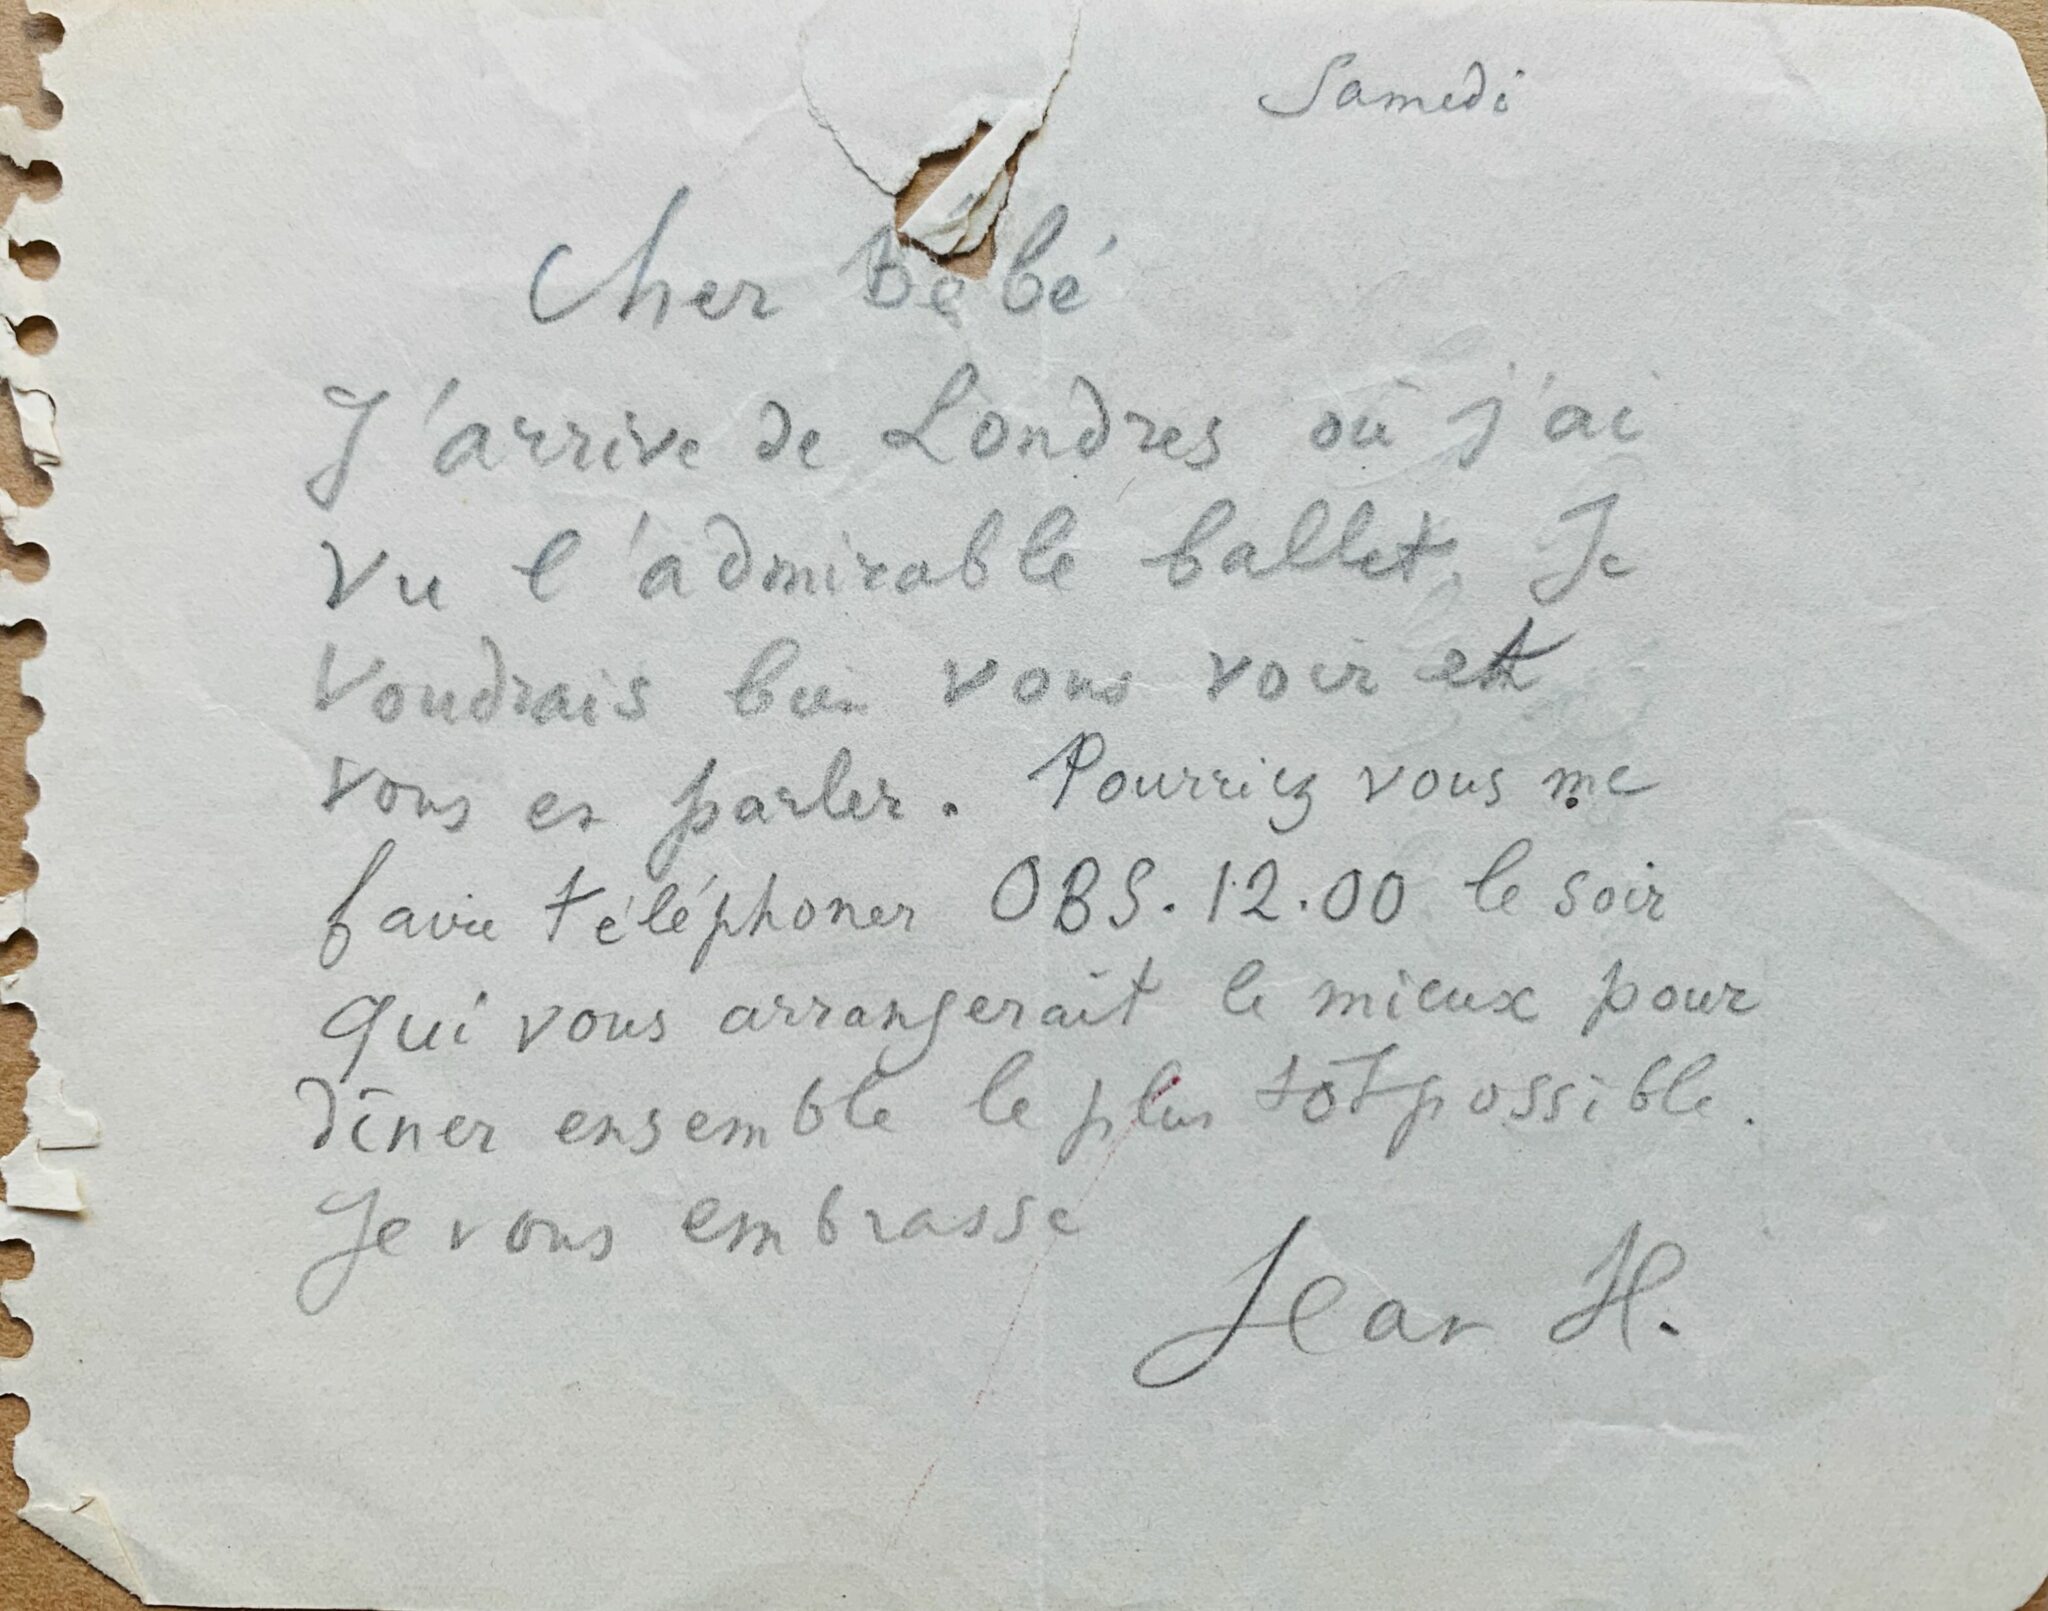 Samedi
Cher Bébé
J'arrive de Londres où j'ai
vu l'admirable ballet. Je
voudrais bien vous voir et
vous en parler. Pourriez vous me
faire téléphoner OBS. 12.00 le soir
qui vous arrangerait le mieux pour
dîner ensemble le plus tôt possible.
Je vous embrasse
Jean H.